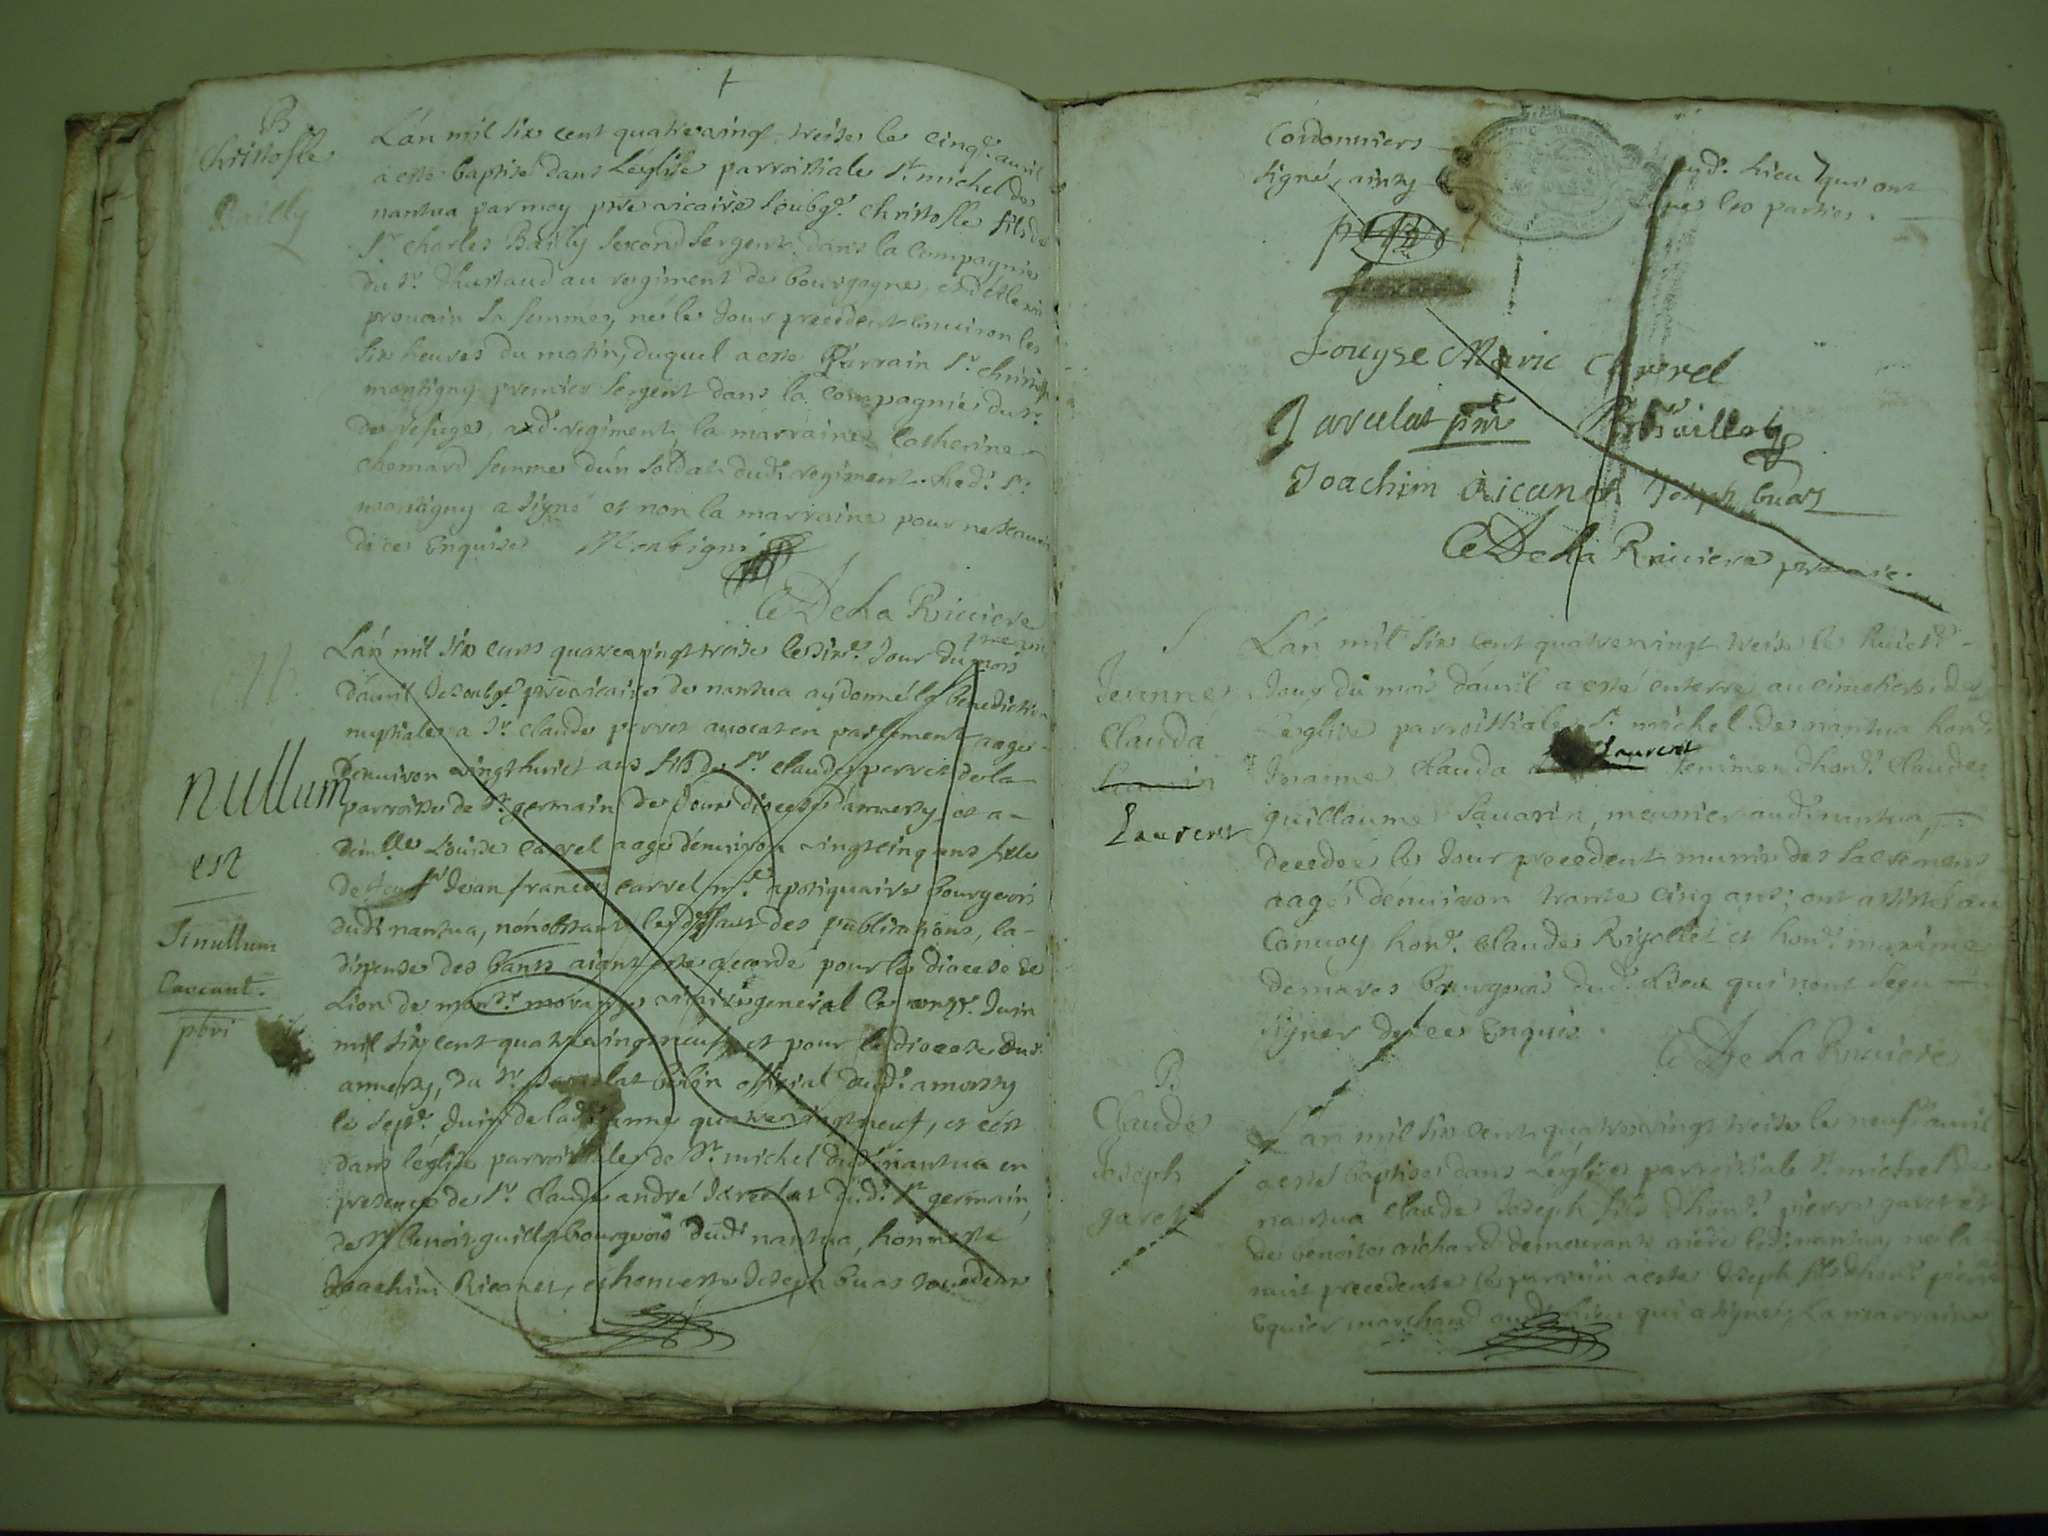 B.
Christofle
Bailly
L'an mil six cent quatrevingt treise le cinq.e avril
a esté baptisé dans L'église parroissiale St. michel de
nantua par moy pbre vicaire soubg.é christofle fils de
Sr. charles Bailly second sergent dans la compagnie
du Sr. au regiment de bourgogne, et d'
sa femme, né le Jour precedent environ les
six heures du matin, duquel a esté parrain Sr.
montigny premier sergent dans la compagnie du Sr.
de refuge, aud. regiment, la marraine Catherine
chemard femme d'un soldat dud. regiment. Led. Sr.
montigny a signé et non la marraine pour ne scavoir
de ce Enquise Montigni
C DeLa Riviere
L'an mil six cents quatrevingt treise le six.e Jour du mois
d'avril Je soubg.é pbre vicaire de nantua ay donné la benediction
nuptiale a Sr. claude perret avocat en parlement aagé
d'environ vingt huict ans fils de Sr. claude perret de la
parroisse de St. germain de Joux diocese d'annessy, et a
dem.lle Louise carrel aagé d'environ vingt cinq ans fille
de Sr. Jean francois carrel m.e apotiquaire bourgeois
dud. nantua, nonobstant le deffaut des publications, la
dispense des bans aiant esté accordé pour le diocese de
Lion de mons.r morange vicaire general le Juin
mil six cent quatrevingt neuf, et pour le diocese dud.
annessy, du Sr. official dud. annessy
le sept.e Juin de lad. anné quatre vingt neuf, et c'est
dans l'église parroissiale de St. michel dud. nantua en
presence de Sr. claude andré Jarcelat dud. St. germain,
de Sr. benoit guillot bourgeois dud. nantua, honneste
Joachim Ricanet, et honneste Joseph buat
nullum
est
Si nullum
pbri
Cordonniers aud. Lieu qui ont
signé, ainsy que les parties.
Louyse Marie Carrel
Jarcelat pnt B Guillot
Joachim Ricanet Joseph buat
C DeLa Riviere pbre vic.
S.
Jeanne
Clauda
Laurent
L'an mil six cent quatrevingt treise le huict.e
Jour du mois d'avril a esté enterré au cimetiere de
L'eglise parroissiale St. michel de nantua hon.e
Jeanne Clauda laurent femme d'hon.e Claude
guillaume Savarin, meunier aud. nantua,
decedée le Jour precedent munie des sacremens
aagé d'environ trante cinq ans; ont assisté au
Convoy hon.e Claude Rigollet et hon.e maxime
demares bourgeois dud. Lieu qui n'ont sceu
signer de ce Enquis.
C DeLa Riviere
B.
Claude
Joseph
garet
L'an mil six cent quatrevingt treise le neuf avril
a esté baptisé dans L'église parroissiale St. michel de
nantua claude Joseph fils d'hon.e pierre garet et
de benoite richard demeurants riere led. nantua, né la
nuit precedente le parrain a esté Joseph fils d'hon.e pierre
Equier marchand aud. lieu qui a signé, La marraine